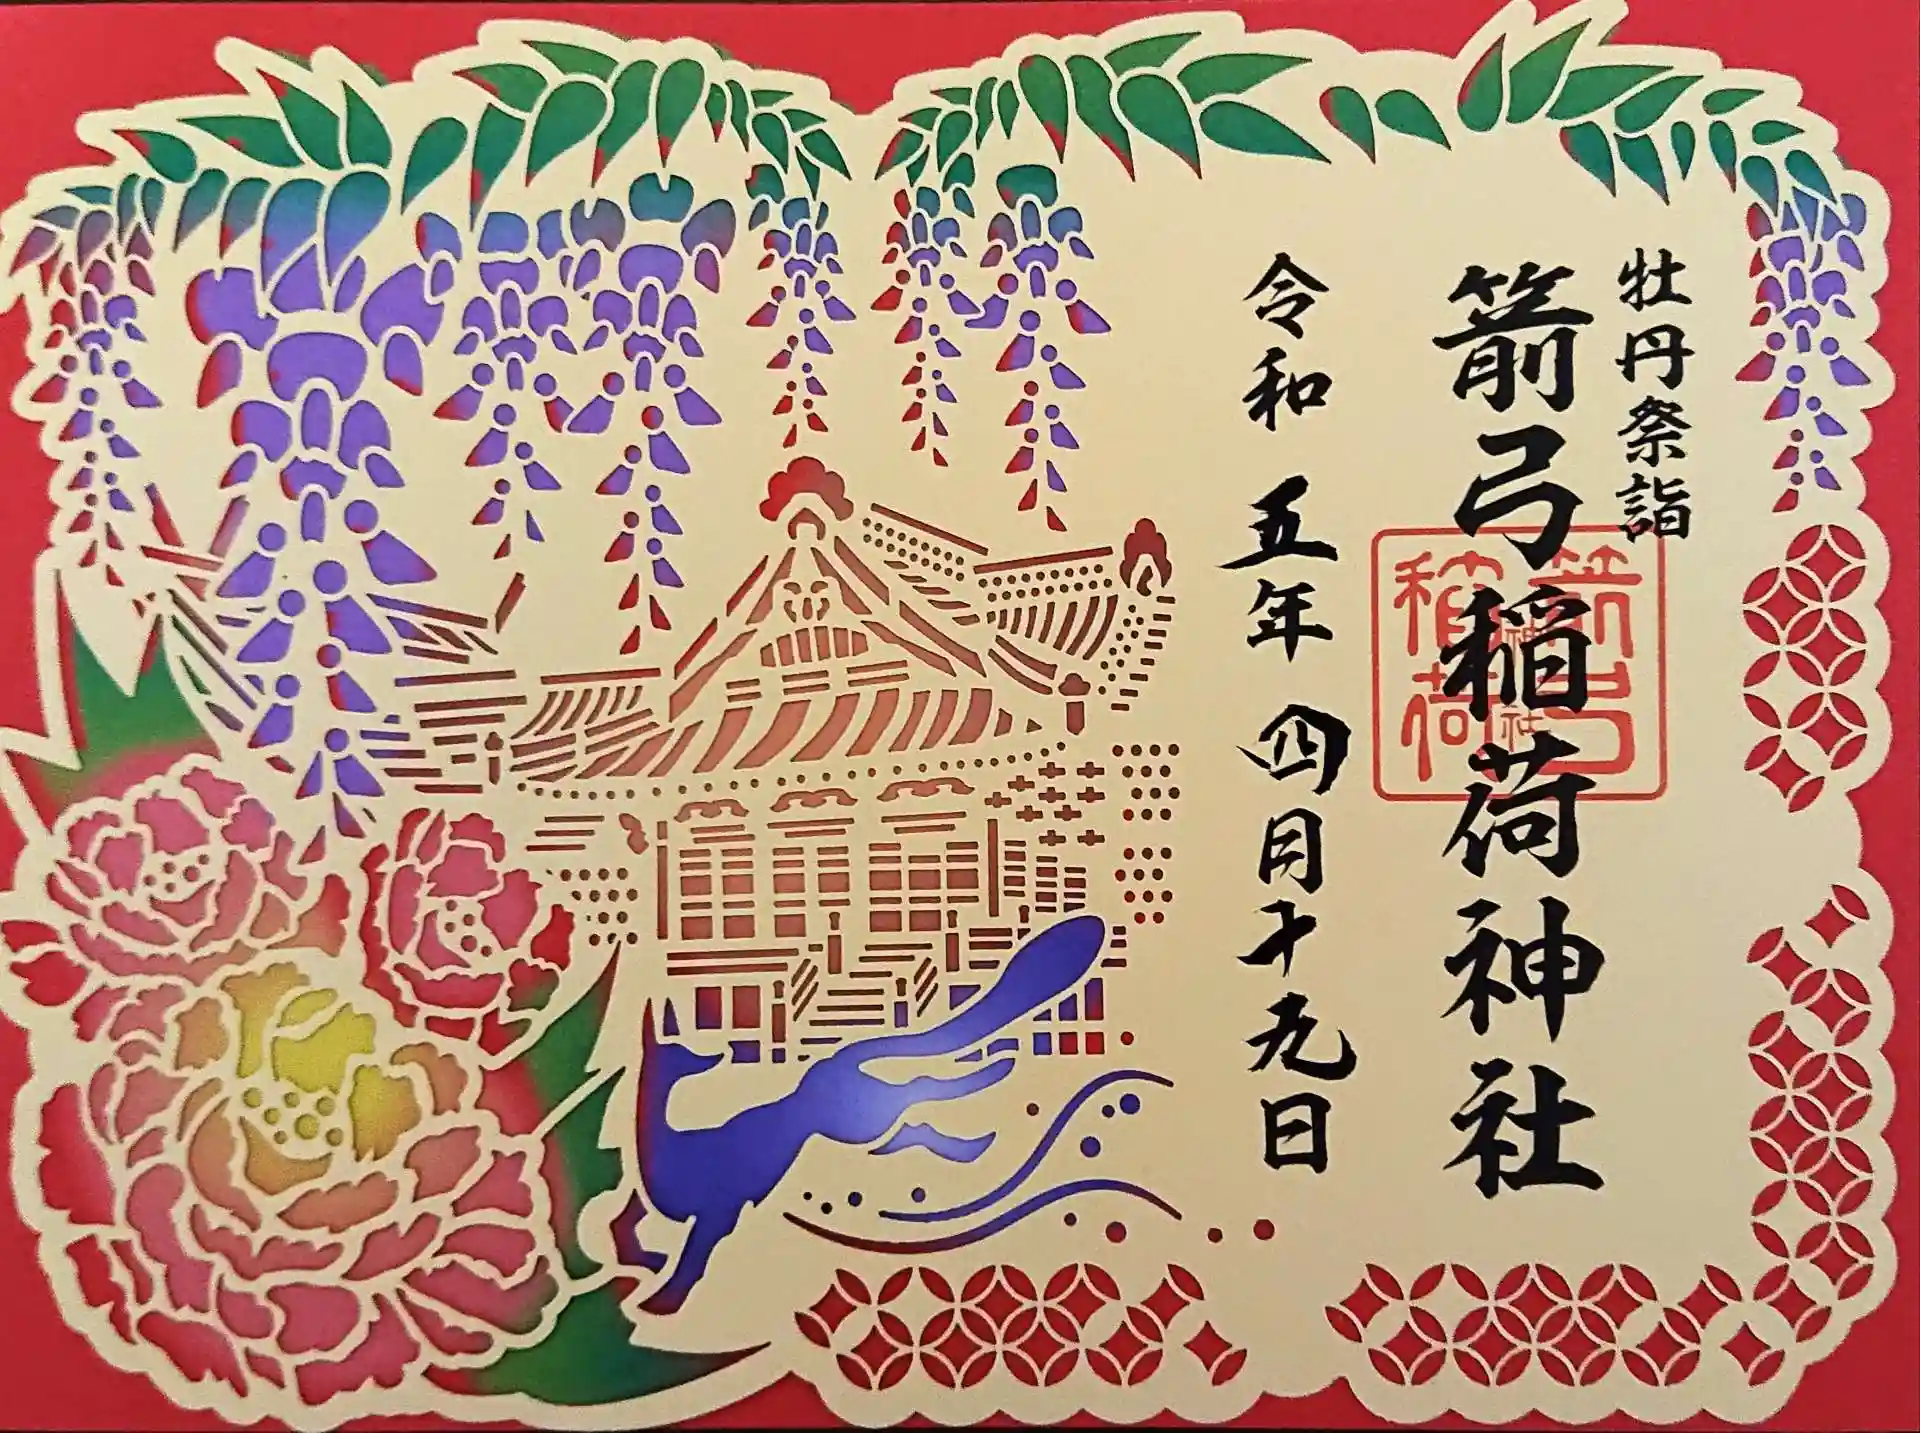 牡丹祭詣
箭弓稲荷神社
令和五年四月十九日
箭弓
稲荷
神社